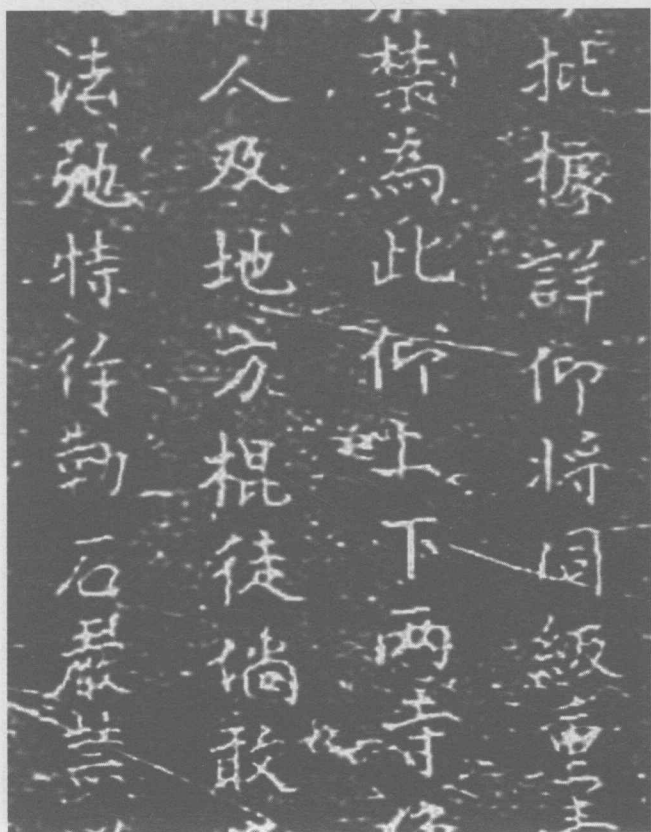 批據詳仰將同級
禁為此仰上下兩寺
人及地方棍徒倘敢
法弛特行勒石嚴禁